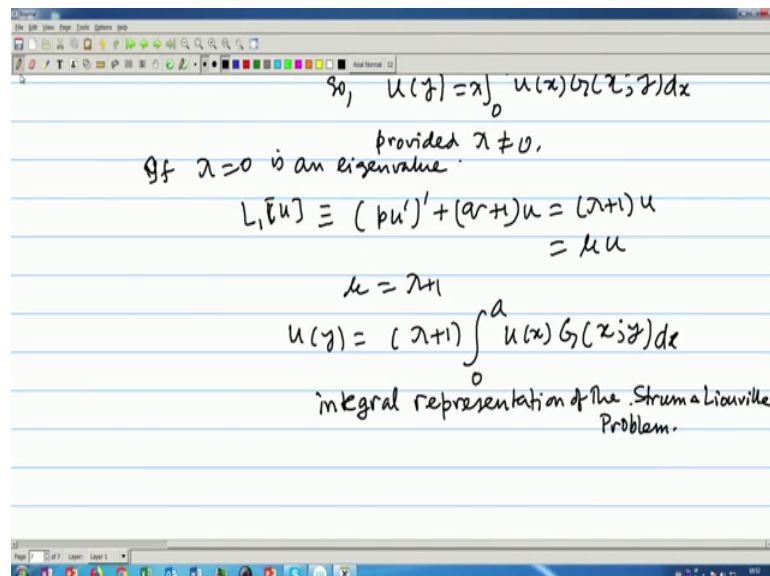 Journal
File Edit View Page Tools Options Help
Arial Normal 12
So, u(y) = λ∫₀ u(x) G(x; y) dx
provided λ ≠ 0.
If λ = 0 is an eigenvalue.
L₁[u] ≡ (pu')' + (q+1)u = (λ+1) u
= μ u
μ = λ+1
u(y) = (λ+1) ∫₀ᵃ u(x) G(x; y) dx
integral representation of the Strum Liouville
Problem.
Page 7 of 7 Layer: Layer 1